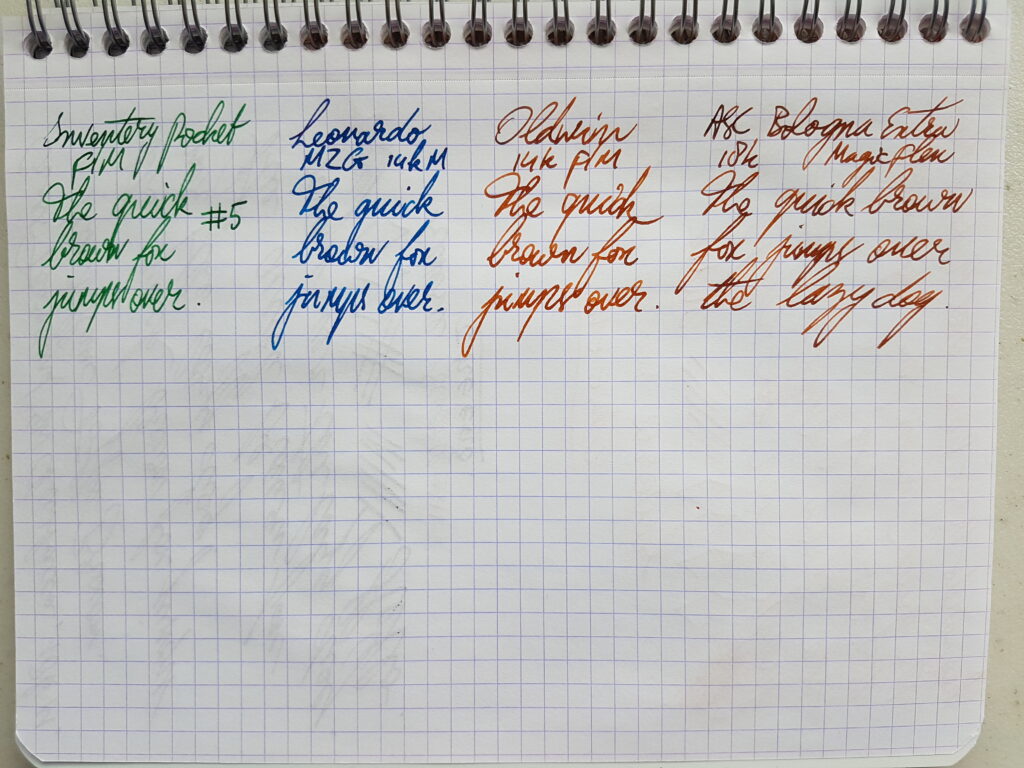 Inventery Pocket
F/M
The quick #5
brown fox
jumps over.
Leonardo
MZG 14k M
The quick
brown fox
jumps over.
Oldwin
14k F/M
The quick
brown fox
jumps over.
ASC Bologna Extra
18k Magic flex
The quick brown
fox jumps over
the lazy dog.